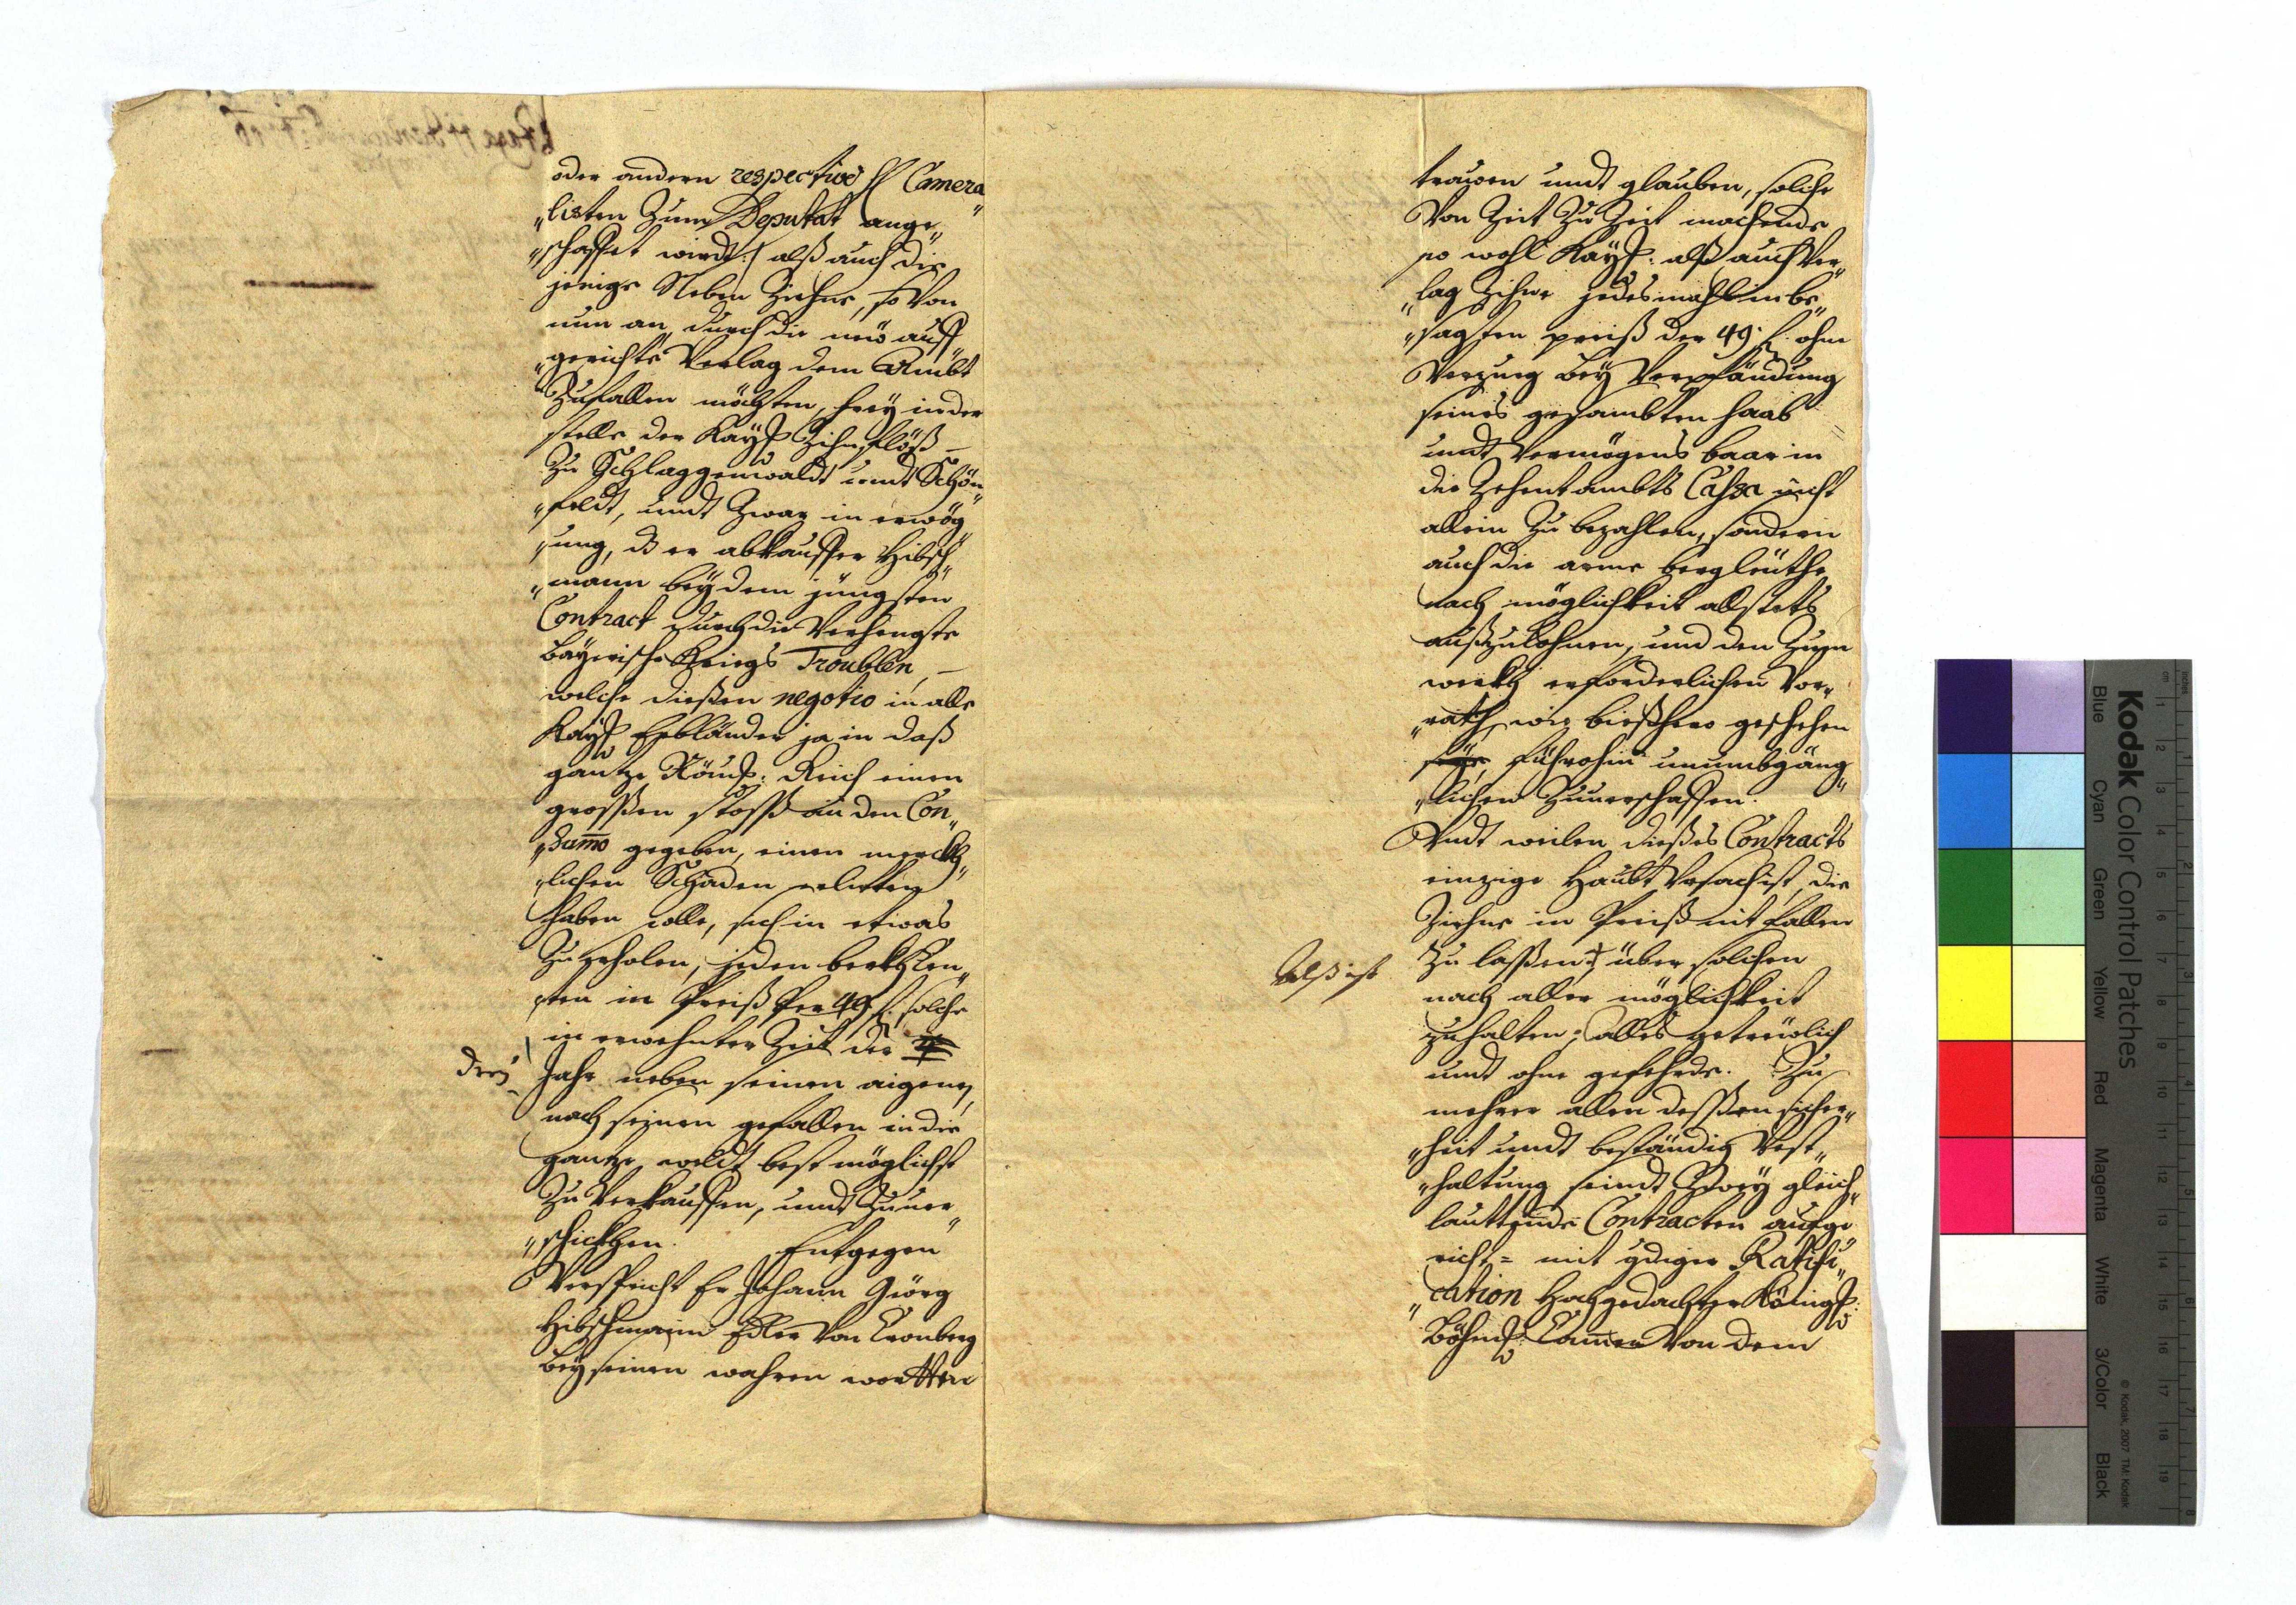 oder andern respectivè H Camera„
„listen zum Deputat ange„
„schaffet wirdt:/ alß auch die
jenige Neben Ziehne, so von
nun an, durch die neü auff„
„gerichte Verlag dem Ambt
zufallen möchten, frey in der
stelle der Kayß Zihnflöß –
zu Schlaggenwaldt undt Schön„
„feldt, undt zwar in erwög„
„ung, dß er abkauffer Hibsch„
„mann bey dem jüngsten
Contract durch die Verhengte
Bayerische Kriegs Troublen, –
welche dießen negotio in alle
Kayß Erbländer ja in daß
gantze Römß: Reich einen
grossen stoß an den Con„
„sumo gegeben, einen merckh„
„lichen Schaden erlitten
haben solle, sich in etwas
zu erholen, jeden
in Preiß per 49 f. solche
in erwehnter Zeit der
drey
Jahr neben seinen aigenen,
nach seinen gefallen in die
gantze weldt best möglichst
zu verkauffen, undt zuver„
„schickhen. Entgegen
Verspricht Er Johann Geörg
Hibschmann Edler von Cronberg
bey seinen wahren wortten
trauen undt glauben, solche
Von Zeit zu Zeit machende
so wohl Kayß: alß auch Ver„
„lag Zihne jedesmahl in be„
„sagten preiß der 49. f. ohne
Verzung bey Verpfändung
seines gesambten haab
undt Vermögens baar in
die Zehentambts Cassa nicht
allein zu bezahlen, sondern
auch die arme bergleüthe
nach möglichkeit allstets
außzulohnen, und den zum
werkh erforderlichen Vor„
„rath, wie bießhero geschehen
führohin unumbgäng„
„lichen zuverschaffen.
Undt weilen dießes Contracts
einzige Haubt Ursach ist, die
Ziehne in Preiß nit fallen
zu lassen, über solchen
Alß ist
nach aller möglichkeit
zuhalten; alles getreülich
undt ohne gefehrde. Zu
mehrer allen dessen sicher„
„heit undt beständig Vest„
„haltung seindt Zwey gleich„
lauttende Contracten aufge„
richt= mit gdiger Ratifi„
„cation Hochgedachter Königß:
Böhmß: Cammer von dem